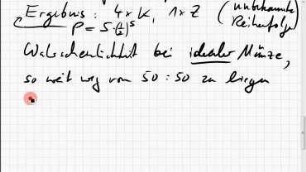 Ergebnis: 4 x K, 1 x Z (unbekannte Reihenfolge)
P = 5·(½)⁵
Wahrscheinlichkeit bei idealer Münze,
so weit weg von 50:50 zu liegen